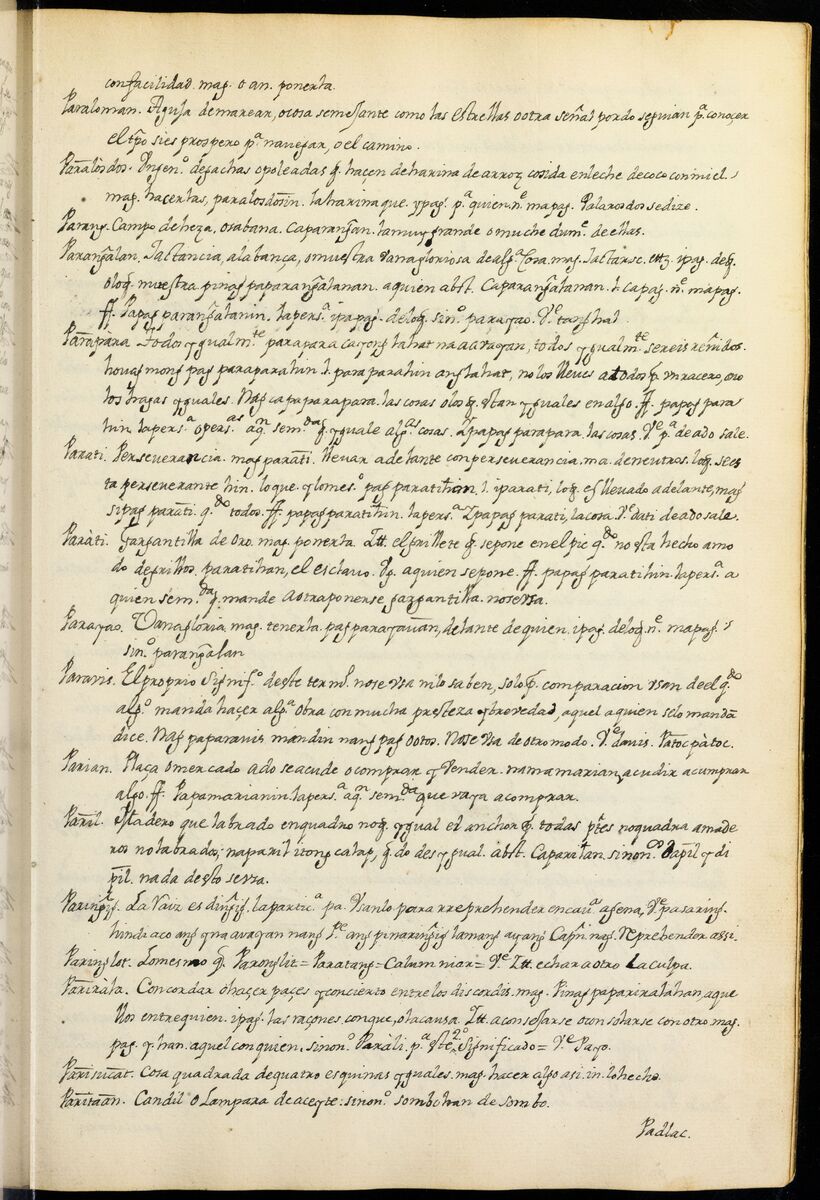 con facilidad. mag. o an. ponerla.
Paraloman. Aguja de marear, o cosa semejante como las estrellas o otra señal por do se guian pª. conoçer
el tpo si es prospero pª. navegar, o el camino.
de gachas o poleadas q̃ haçen de harina de arroz cosida en leche de coco con miel.
mag. haçerlas, la harina que. ypag. pª. quien. nᵉ. mapag. Palarosdos se dize.
Parang. Campo de heza, o sabana. Caparangan. la muy grande o muchedumᵉ. de ellas.
Parangalan. Jactancia, alabança, o muestra vanagloriosa de algª. cosa. mag. Jactarse. ettz. ipag. delq̃.
olo q̃. muestra. pinag paparangalanan. a quien abst. Caparangalanan. l. capag. nᵉ. mapag.
ff. Papag parangalanin. la persª. ipapag. delo q̃. sinº. parayao. Vᵉ tanghal.
Parapara. Todos ygualmᵗᵉ parapara cayong lahat na aarayan, todos ygualmᵗᵉ sereis reñidos.
houag mong pag paraparahin. l. paraparahin ang lahat, no los lleues a todos p. un racero, o no
los hagas yguales. Nag capaparapara. las cosas o los q̃. estan yguales en algo. ff. papag para
hin la persª. o persᵃˢ. aqⁿ. semᵈᵃ q̃. yguale algᵃˢ. cosas. Ipapag parapara. las cosas. Vᵉ pª. de ado sale.
Parati. Perseverancia. mag parati. llevar adelante con perseverancia. ma. de neutros. lo q̃. se es
ta perseverante hin. lo que. y lo mesº. pag paratihan, l. iparati, lo q̃. es llevado adelante, mag
sipag parati. qᵈᵒ. todos. ff. papag paratihin. la persª. Ipapag parati, la cosa. Vᵉ dati de ado sale.
Parati. Gargantilla de oro. mag. ponerla. Itt. el grillete q̃. se pone en el pie qᵈᵒ. no esta hecho amo
do de grillos. paratihan, el esclavo. a quien se pone. ff. papag paratihin. la persª. a
quien semᵈᵃ q̃. mande a otra ponerse gargantilla. no se vsa.
Parayao. Vanagloria, mag. tenerla. pag parayauan, delante de quien. ipag. delo q̃. nᵉ. mapag.
sinº. parangalan
Parauis. El proprio signifº. de este termº. no se vsa ni lo saben, solo pº. comparacion vsan de el qᵈᵒ
algº. manda haçer algª. obra con mucha presteza y brevedad, aquel a quien se lo manda
dice. Nag paparauis mandin nang pag ootos. No se vsa de otro modo. Vᵉ dauis. Patocpàtoc.
Parian. Plaça o mercado ado se acude o comprar y vender. namamarian, acudir a cumprar
algo. ff. Papamarianin. la persª. aqⁿ. semᵈᵃ que vaya a comprar.
Paril. que labrado en quadro no q̃. ygual el anchor pº. todas ptes no quadra a made
ros no labrados; naparil itong calap, q̃do desygual. abst. Caparilan. sinonᵒˢ dapil y di
pil. nada desto se vsa.
La raiz es la particª. pa. Vsanlo para rreprehender en cauª. agena, Vᵉ pasaring
Paringlot. Lo mesmo q̃. Paronglit = Paratang = Calumniar = Vᵉ Itt. echar a otro la culpa.
Parirala. Concordar o haçer paçes y concierto entre los discordis. mag. Pinag papariralahan, aque
llos entre quien. ipag. las raçones, con que, o la causa. Itt. aconsejarse o consolarse con otro mag.
pag. y han. aquel con quien. sinonº. Parali. pª. este 2º. significado = Vᵉ Payo.
Parisucat. Cosa quadrada de quatro esquinas yguales. mag. hacer algo asi. in. lo hecho.
Paritaan. Candil o lampara de aceyte. sinonº. sombohan de sombo.
Padlac.